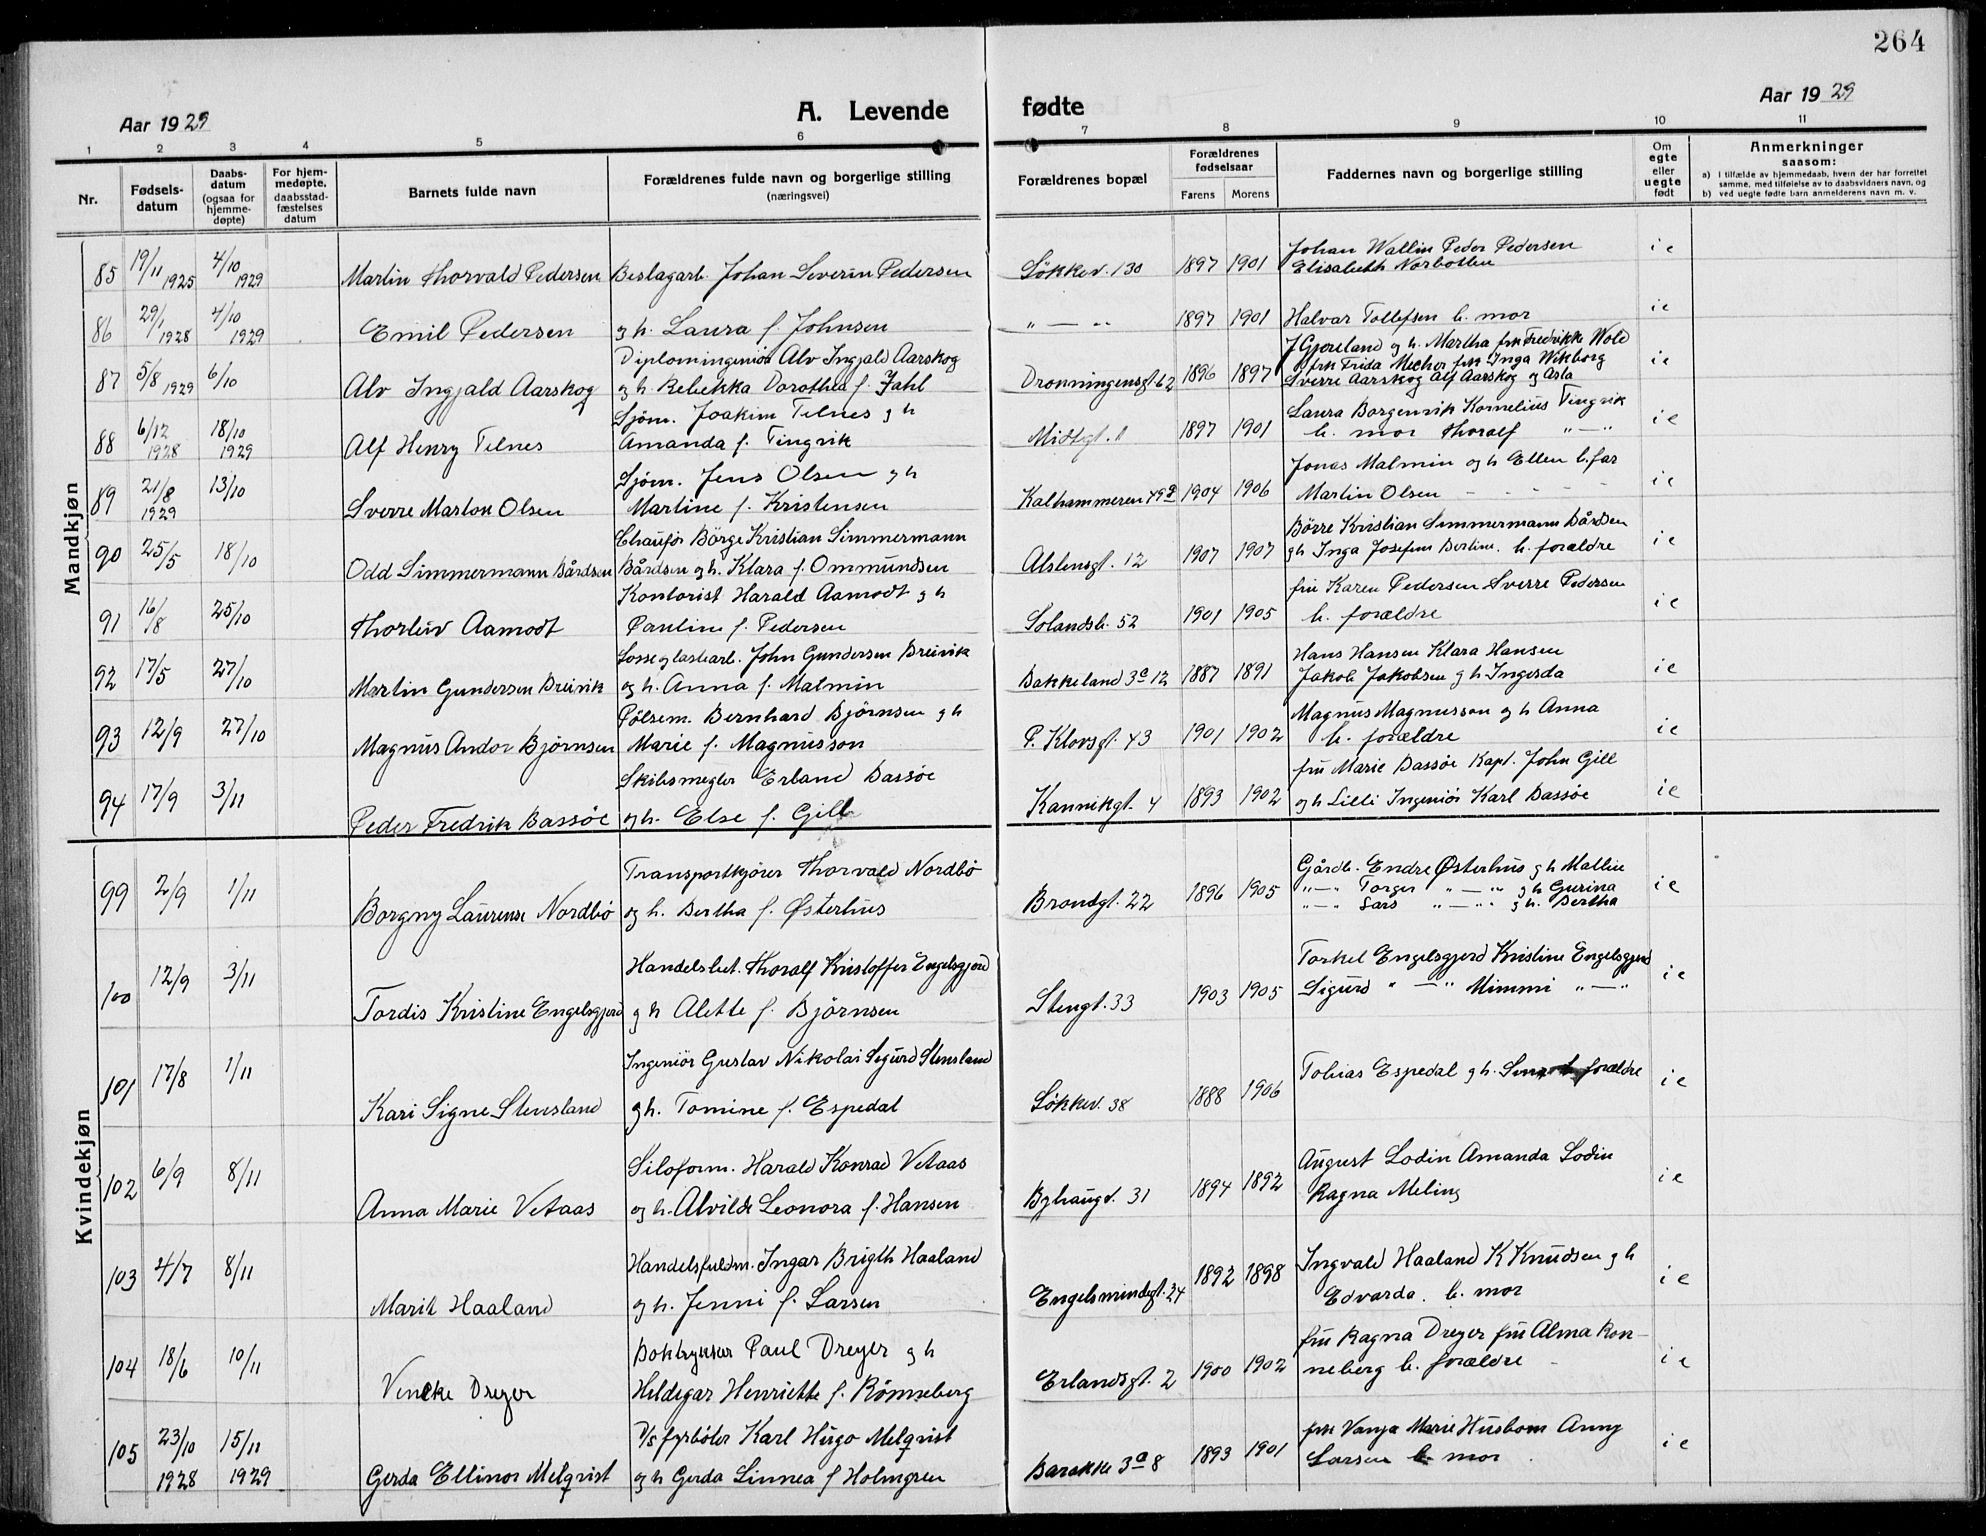 264
Aar 1929
A. Levende fødte
Aar 1929
1 2 3 4 5 6 7 8 9 10 11
Nr.
Fødsels-
datum
Daabs-
datum
(ogsaa for
hjemme-
døpte)
For hjem-
medøpte,
daabsstad-
fæstelses
datum
Barnets fulde navn
Forældrenes fulde navn og borgerlige stilling
(næringsvei)
Forældrenes bopæl
Forældrenes
fødselsaar
Farens Morens
Faddernes navn og borgerlige stilling
Om
egte
eller
uegte
født
Anmerkninger
saasom:
a) I tilfælde av hjemmedaab, hvem der har forrettet
samme, med tilføielse av to daabsvidners navn, og
b) ved uegte fødte barn anmelderens navn m. v.
Mandkjøn
85 19/11 1925 4/10 1929 Martin Thorvald Pedersen Beslagarb. Johan Severin Pedersen Løkkev. 130 1897 1901 Johan Wallin Peder Pedersen i e
Elisabeth Norbotten
86 29/1 1928 4/10 1929 Emil Pedersen og h. Laura f. Johnsen " — " 1897 1901 Halvar Tollefsen b. mor i e
87 5/8 1929 6/10 Alv Ingjald Aarskog Diplomingeniør Alv Ingjald Aarskog
og h. Rebekka Dorothea f. Jahl Dronningensgt. 62 1896 1897 J Gjøreland og h. Martha frk Fredrikke Wold
frk Frida Melhor frk Inga Wikborg
Sverre Aarskog Alf Aarskog og Asta i e
88 6/12 1928 18/10 1929 Alf Henry Telnes Sjøm. Joakim Telnes og h
Amanda f. Tingvik Midtgt. 1 1897 1901 Laura Borgenvik Kornelius Tingvik
b. mor Thoralf " — " i e
89 21/8 1929 13/10 Sverre Marton Olsen Sjøm. Jens Olsen og h
Martine f. Kristensen Kalhammeren 49 1904 1906 Jonas Malmin og h Ellen b. far
Martin Olsen i e
90 25/5 18/10 Odd Simmermann Bårdsen Chaufør Børge Kristian Simmermann
Bårdsen og h. Klara f. Ommundsen Alstensgt. 12 1907 1907 Børre Kristian Simmermann Bårdsen
og h Inga Josefine Bertine. b. forældre i e
91 16/8 25/10 Thorleiv Aamodt Kontorist Harald Aamodt og h
Pauline f. Pedersen Solandsb. 52 1901 1905 fru Karen Pedersen Sverre Pedersen
b. forældre i e
92 17/5 27/10 Martin Gundersen Breivik Losse og lastearb. John Gundersen Breivik
og h. Anna f. Malmin Bakkeland 3a 12 1887 1891 Hans Hansen Klara Hansen
Jakob Jakobsen og h Ingerda i e
93 12/9 27/10 Magnus Andor Bjørnsen Pølsem. Bernhard Bjørnsen og h
Marie f. Magnusson P. Klovsgt. 43 1901 1902 Magnus Magnusson og h Anna
b. forældre i e
94 17/9 3/11 Peder Fredrik Bassøe Skibsmegler Erland Bassøe
og h. Else f. Gill Kannikgt. 4 1893 1902 fru Marie Bassøe Kapt. John Gill
og h Lilli Ingeniør Karl Bassøe i e
Kvindekjøn
99 2/9 1/11 Borgny Laurense Nordbø Transportkjører Thorvald Nordbø
og h. Bertha f. Østerhus Brondgt. 22 1896 1905 Gårdb. Endre Østerhus og h Malline
" — " Torger " — " og h Gurina
" — " Lars " — " og h. Bertha i e
100 12/9 3/11 Tordis Kristine Engelsgjerd Handelsbet. Thoralf Kristoffer Engelsgjerd
og h Alette f. Bjørnsen Stengt. 33 1903 1905 Torkel Engelsgjerd Kristine Engelsgjerd
Sigurd " — " Mimmi " — " i e
101 17/8 1/11 Kari Signe Stensland Ingeniør Gustav Nikolai Sigurd Stensland
og h. Tomine f. Espedal Løkkev. 38 1888 1906 Tobias Espedal og h. forældre i e
102 6/9 8/11 Anna Marie Vetaas Siloform. Harald Konrad Vetaas
og h. Alvilde Leonora f. Hansen Byhaugt. 31 1894 1892 August Lodin Amanda Lodin
Ragna Meling i e
103 4/7 8/11 Marit Haaland Handelsfuldm. Ingar Brigth Haaland
og h. Jenni f. Larsen Engelsmindegt. 24 1892 1898 Ingvald Haaland K Knudsen og h
Edvarda. b. mor i e
104 18/6 10/11 Vencke Dreyer Boktrykker Paul Dreyer og h
Hildegar Henriette f. Rønneberg Erlandsgt. 2 1900 1902 fru Ragna Dreyer fru Alma Ron-
neberg b. forældre i e
105 23/10 1928 15/11 1929 Gerda Ellinor Melqvist D/s fyrbøter Karl Hugo Melqvist
og h Gerda Linnea f Holmgren Barakke 3a 8 1893 1901 frk Vanja Marie Husbom Anny
Larsen b mor i e